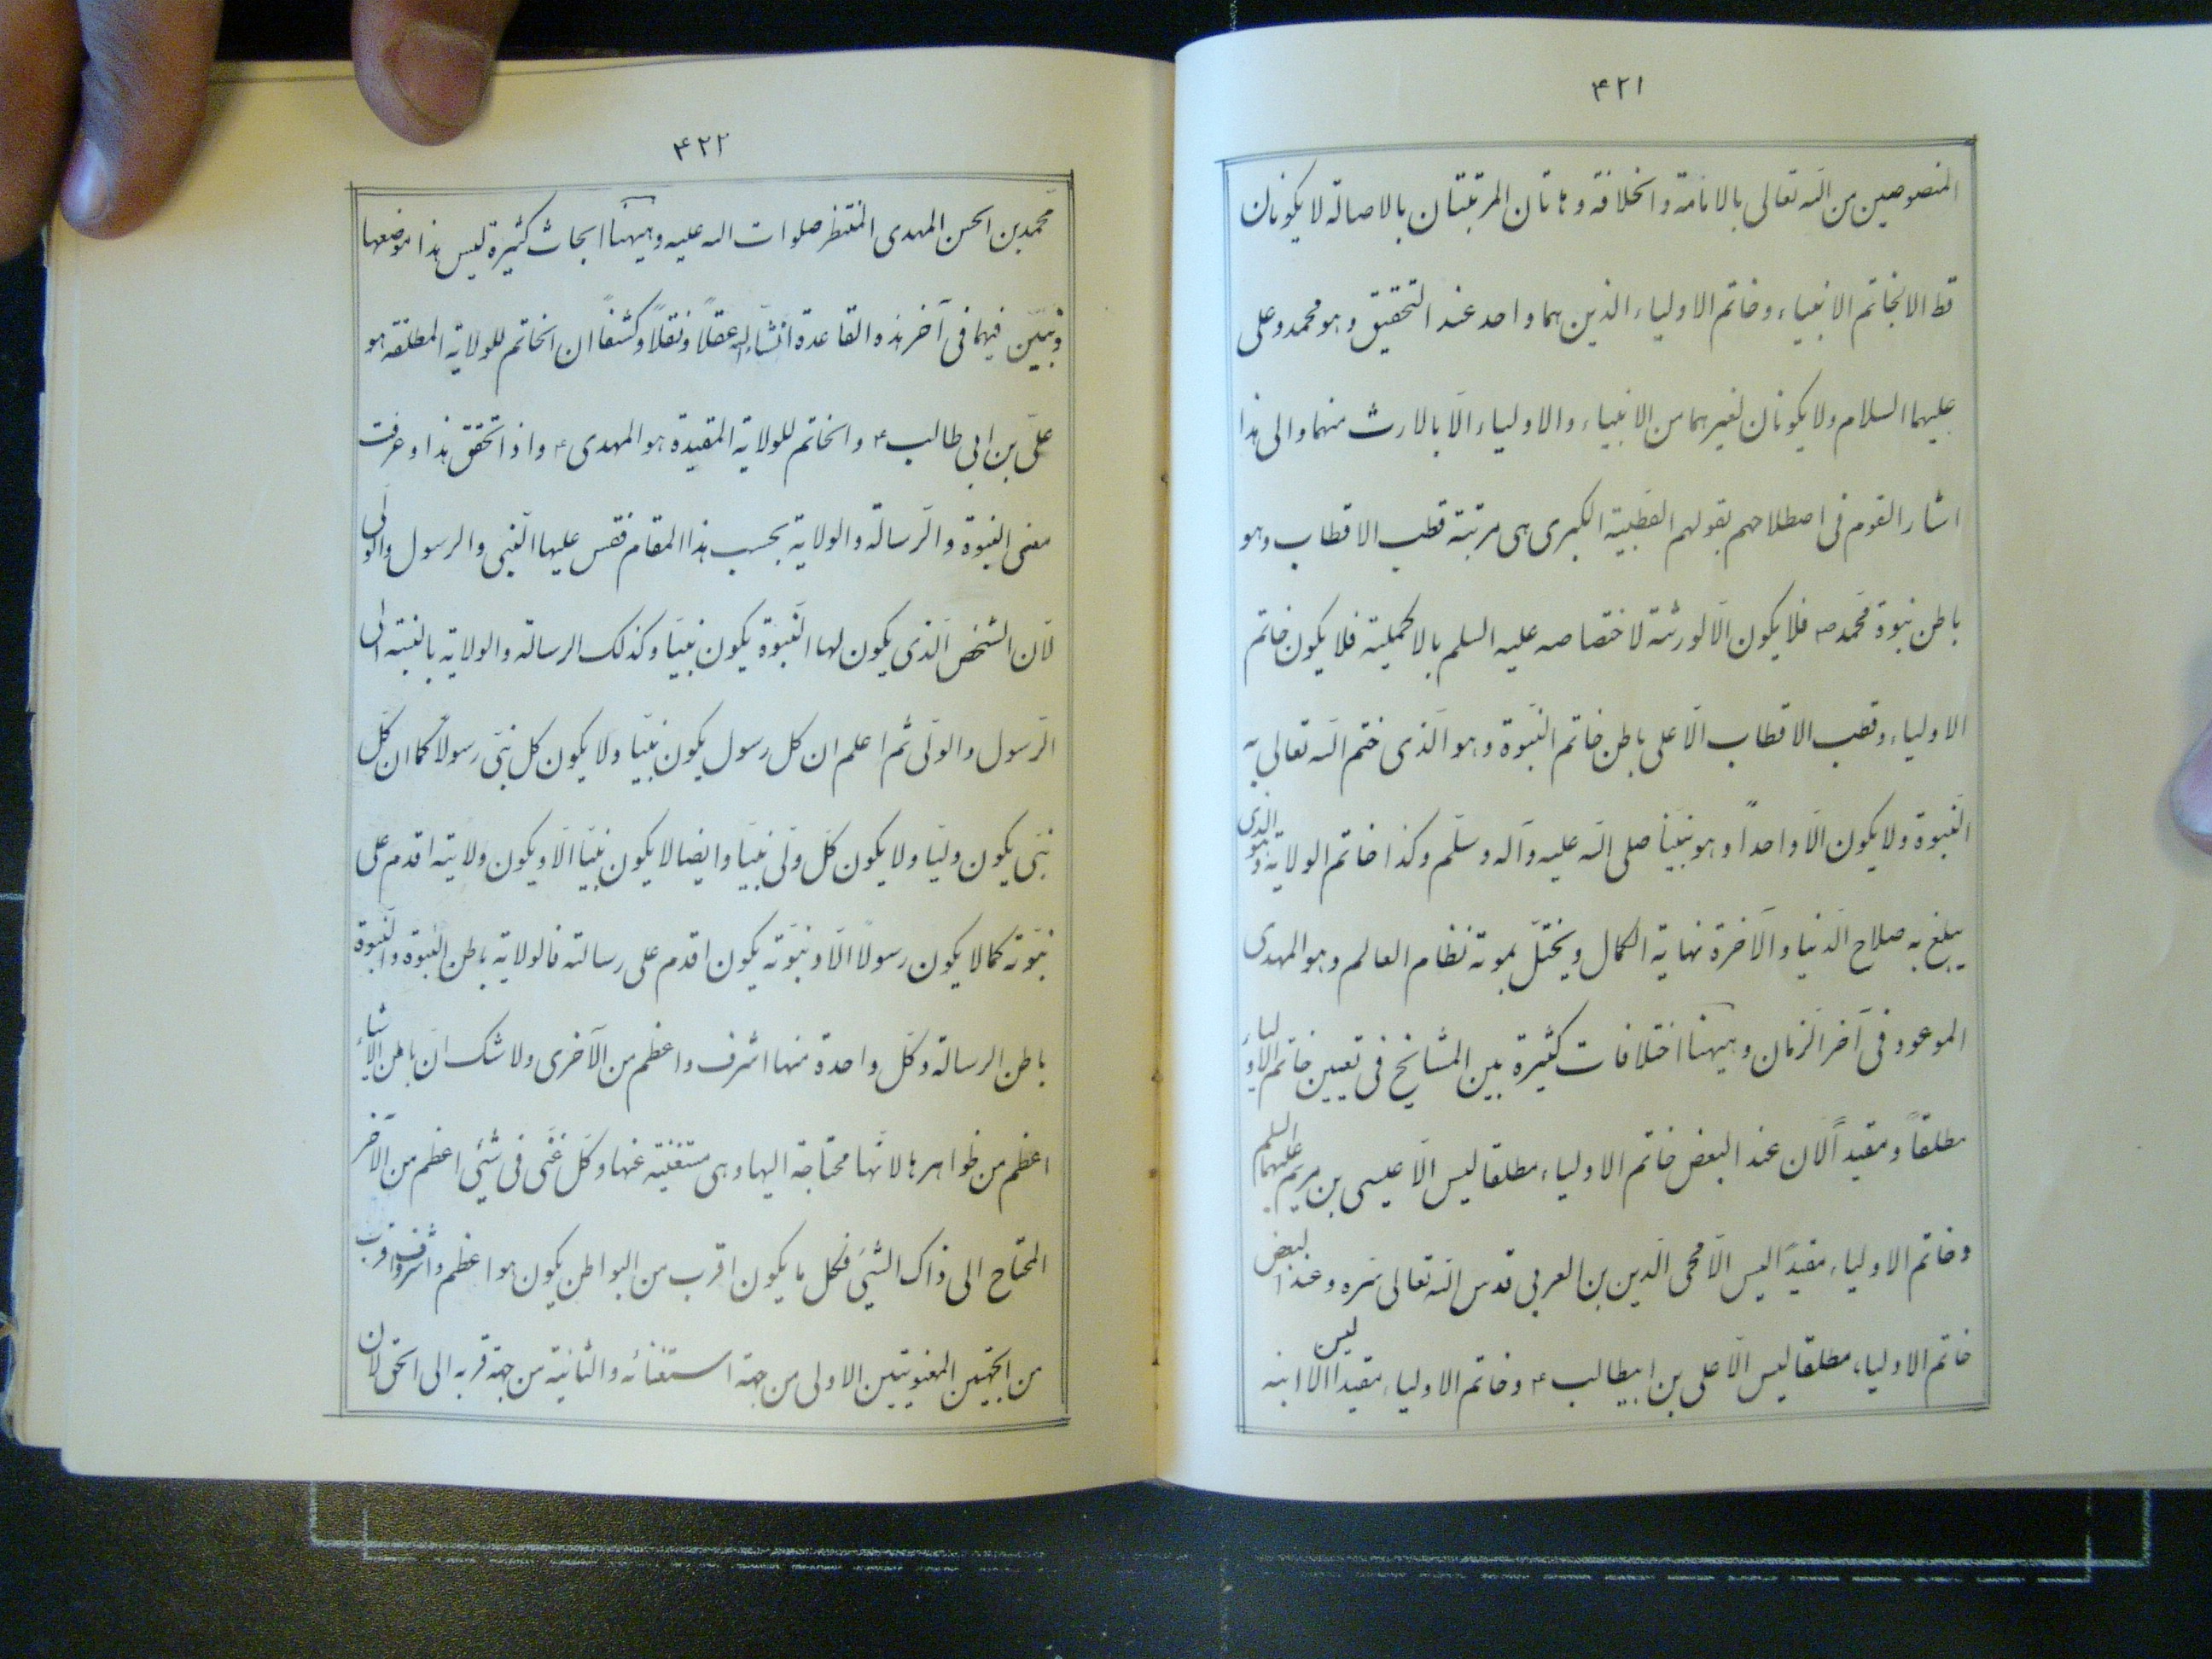 ۴۲۱
المنصوصین من الله تعالی بالامامة والخلافة و هاتان المرتبتان بالاصالة لا یکونان
قط الا لخاتم الانبیاء و خاتم الاولیاء الذین هما واحد عند التحقیق و هو محمد و علی
علیهما السلام ولا یکونان لغیرهما من الانبیاء والاولیاء الّا بالارث منهما والی هذا
اشار القوم فی اصطلاحهم بقولهم القطبیة الکبری هی مرتبة قطب الاقطاب و هو
باطن نبوة محمّد ص فلا یکون الّا لورثته لاختصاصه علیه السلم بالاکملیة فلا یکون خاتم
الاولیاء و قطب الاقطاب الّا علی باطن خاتم النبّوة و هو الّذی ختم الله تعالی به
النّبوة ولا یکون الّا واحداً و هو نبیّنا صلی الله علیه وآله وسلّم و کذا خاتم الولایة و هو الذی
یبلغ به صلاح الّدنیا والآخرة نهایة الکمال و یختلّ بموته نظام العالم و هو المهدی
الموعود فی آخر الّزمان و ههنا اختلافات کثیرة بین المشایخ فی تعیین خاتم الاولیاء
مطلقاً و مقیداً لّان عند البعض خاتم الاولیاء مطلقا لیس الّا عیسی بن مریم علیهما السلم
و خاتم الاولیاء مقیدًا لیس الّا محی الّدین بن العربی قدس الله تعالی سّره و عند البعض
خاتم الاولیاء مطلقا لیس الّا علی بن ابیطالب ع و خاتم الاولیاء مقیدا لیس الّا ابنه
۴۲۲
محّمد بن الحسن المهدی المنتظر صلوات الله علیه و ههنا ابحاث کثیرة لیس هذا موضعها
و نبیّن فیهما فی آخر هذه القاعدة انشاء الله عقلاً و نقلاً و کشفاً ان الخاتم للولایة المطلقة هو
علّی بن ابی طالب ع والخاتم للولایة المقیدة هو المهدی ع و اذا تحّقق هذا و عرفت
معنی النبوة والّرسالة والولایة بحسب هذا المقام فقس علیها النّبی والرسول والولّی
لّان الشخص الّذی یکون لها النّبوّة یکون نبّیا و کذلک الرسالة والولایة بالنسبة الی
الّرسول والولّی ثم اعلم ان کل رسول یکون نبّیا ولا یکون کل نبّی رسولاً کما ان کلّ
نبّی یکون ولّیا ولا یکون کلّ ولّی نبّیا وایضا لا یکون نبّیا الّا و یکون ولایته اقدم علی
نبّوته کما لا یکون رسولًا الّا و نبّوته یکون اقدم علی رسالته فالولایة باطن النبّوة والنّبوة
باطن الرسالة و کلّ واحدة منها اشرف و اعظم من الآخری ولا شک انّ باطن الاشیاء
اعظم من ظواهرها لانّها محتاجة الیها و هی مستغنیة عنها و کلّ غنّی فی شیئی اعظم من الآخر
المحتاج الی ذاک الشیئی فکل ما یکون اقرب من البواطن یکون هو اعظم و اشرف و اقرب
من الجهتین المعنویتین الاولی من جهة استغنائه والثانیة من جهة قربه الی الحق لان